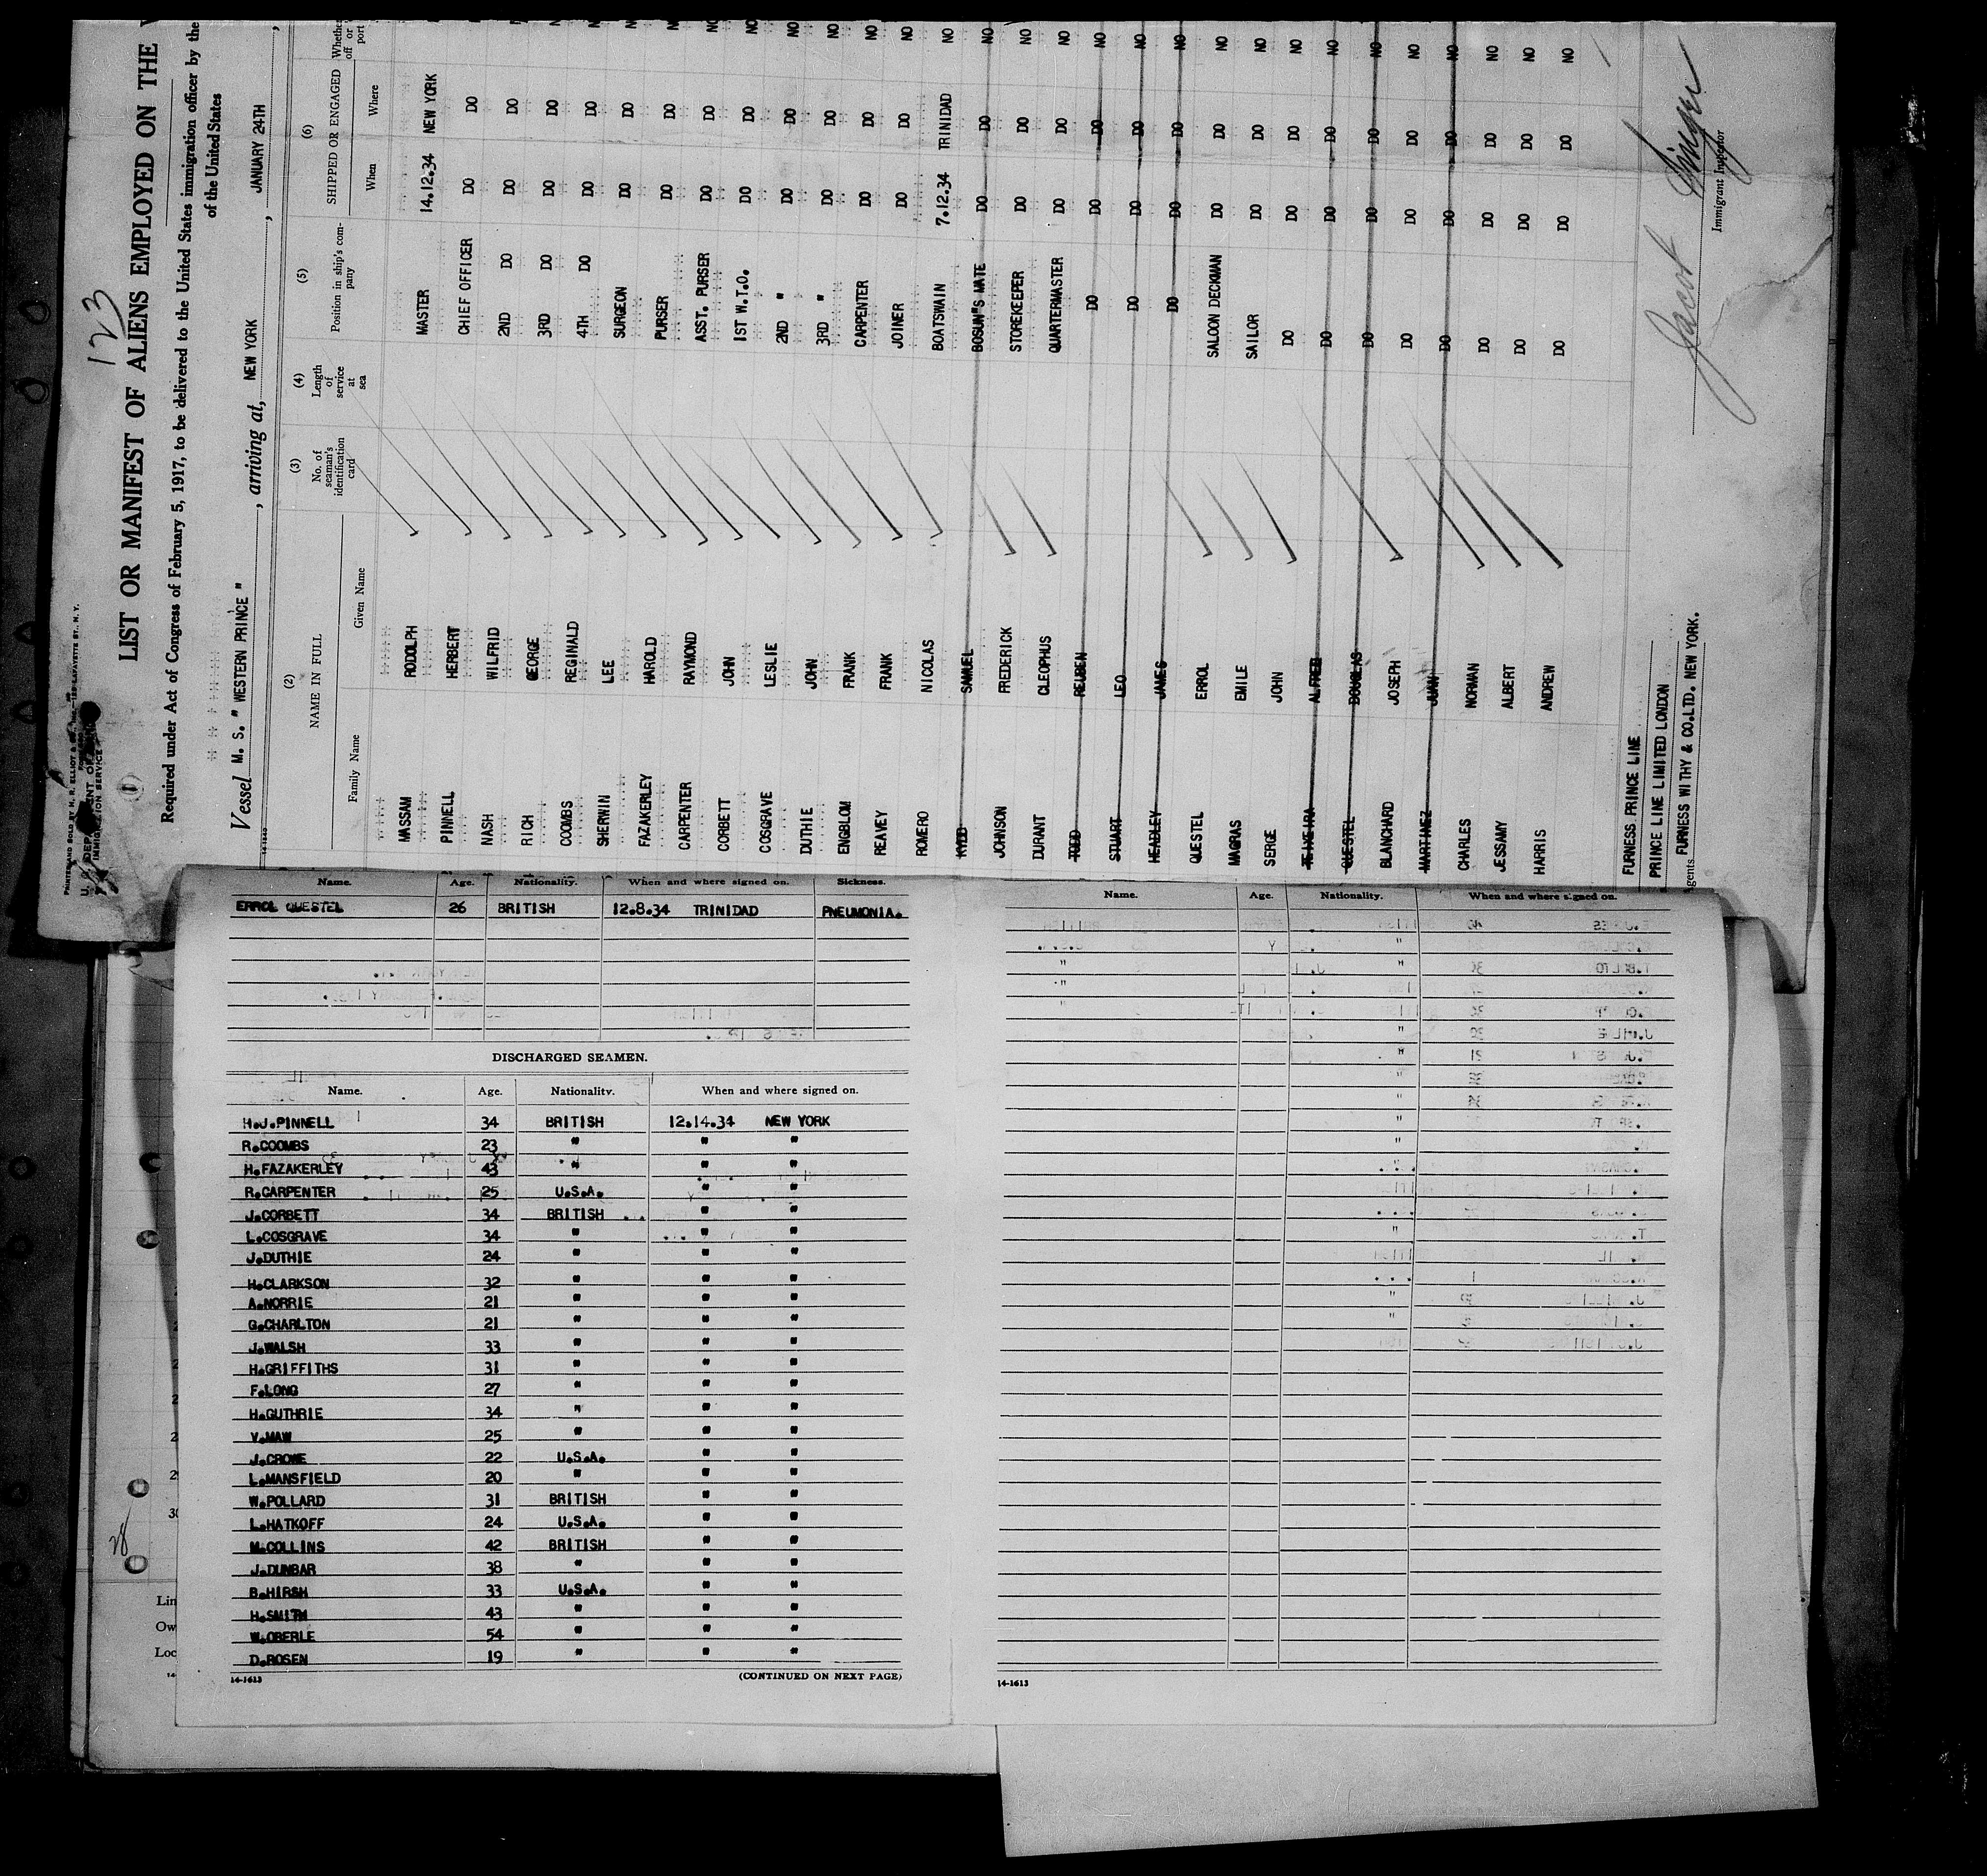 123
LIST OR MANIFEST OF ALIENS EMPLOYED ON THE
Required under Act of Congress of February 5, 1917, to be delivered to the United States immigration officer by the
of the United States
Vessel M. S. " WESTERN PRINCE " , arriving at, NEW YORK , JANUARY 24TH ,
(2) (3) (4) (5) (6)
NAME IN FULL No. of seaman's identification card Length of service at sea Position in ship's company SHIPPED OR ENGAGED
Family Name Given Name When Where
MASSAM RODOLPH MASTER 14.12.34 NEW YORK
PINNELL HERBERT CHIEF OFFICER DO DO NO
NASH WILFRID 2ND DO DO DO NO
RICH GEORGE 3RD DO DO DO NO
COOMBS REGINALD 4TH DO DO DO NO
SHERWIN LEE SURGEON DO DO NO
FAZAKERLEY HAROLD PURSER DO DO NO
CARPENTER RAYMOND ASST. PURSER DO DO NO
CORBETT JOHN 1ST W.T.O. DO DO NO
COSGRAVE LESLIE 2ND " DO DO NO
DUTHIE JOHN 3RD " DO DO NO
ENGBLOM FRANK CARPENTER DO DO NO
REAVEY FRANK JOINER DO DO NO
ROMERO NICOLAS BOATSWAIN 7.12.34 TRINIDAD NO
KYDD SAMUEL BOSUN"S MATE DO DO NO
JOHNSON FREDERICK STOREKEEPER DO DO NO
DURANT CLEOPHUS QUARTERMASTER DO DO NO
TODD REUBEN DO DO DO NO
STUART LEO DO DO DO NO
HEADLEY JAMES DO DO DO NO
QUESTEL ERROL SALOON DECKMAN DO DO NO
MAGRAS EMILE SAILOR DO DO NO
SERGE JOHN DO DO DO NO
TEIXEIRA ALFRED DO DO DO NO
QUESTEL DOUGLAS DO DO DO NO
BLANCHARD JOSEPH DO DO DO NO
MARTINEZ JUAN DO DO DO NO
CHARLES NORMAN DO DO DO NO
JESSAMY ALBERT DO DO DO NO
HARRIS ANDREW DO DO DO NO
FURNESS PRINCE LINE
PRINCE LINE LIMITED LONDON
Agents FURNESS WITHY & CO.LTD. NEW YORK.
Jacob
Immigrant Inspector
Name. Age. Nationality. When and where signed on. Sickness.
ERROL QUESTEL 26 BRITISH 12.8.34 TRINIDAD PNEUMONIA.
DISCHARGED SEAMEN.
Name. Age. Nationality. When and where signed on.
H.J.PINNELL 34 BRITISH 12.14.34 NEW YORK
R.COOMBS 23 " " "
H.FAZAKERLEY 43 " " "
R.CARPENTER 25 U.S.A. " "
J.CORBETT 34 BRITISH " "
L.COSGRAVE 34 " " "
J.DUTHIE 24 " " "
H.CLARKSON 32 " " "
A.NORRIE 21 " " "
G.CHARLTON 21 " " "
J.WALSH 33 " " "
H.GRIFFITHS 31 " " "
F.LONG 27 " " "
H.GUTHRIE 34 " " "
V.MAW 25 " " "
J.CROWE 22 U.S.A. " "
L.MANSFIELD 20 " " "
W.POLLARD 31 BRITISH " "
L.HATKOFF 24 U.S.A. " "
M.COLLINS 42 BRITISH " "
J.DUNBAR 38 " " "
B.HIRSH 33 U.S.A. " "
H.SMITH 43 " " "
W.OBERLE 54 " " "
D.ROSEN 19 " " "
14-1613 (CONTINUED ON NEXT PAGE)
Name. Age. Nationality. When and where signed on.
14-1613
28
Lin
Ow
Loc